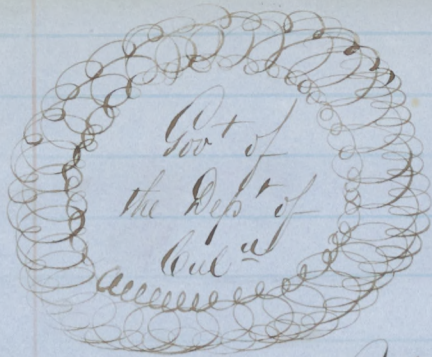 Govt of
the Dept of
Cala